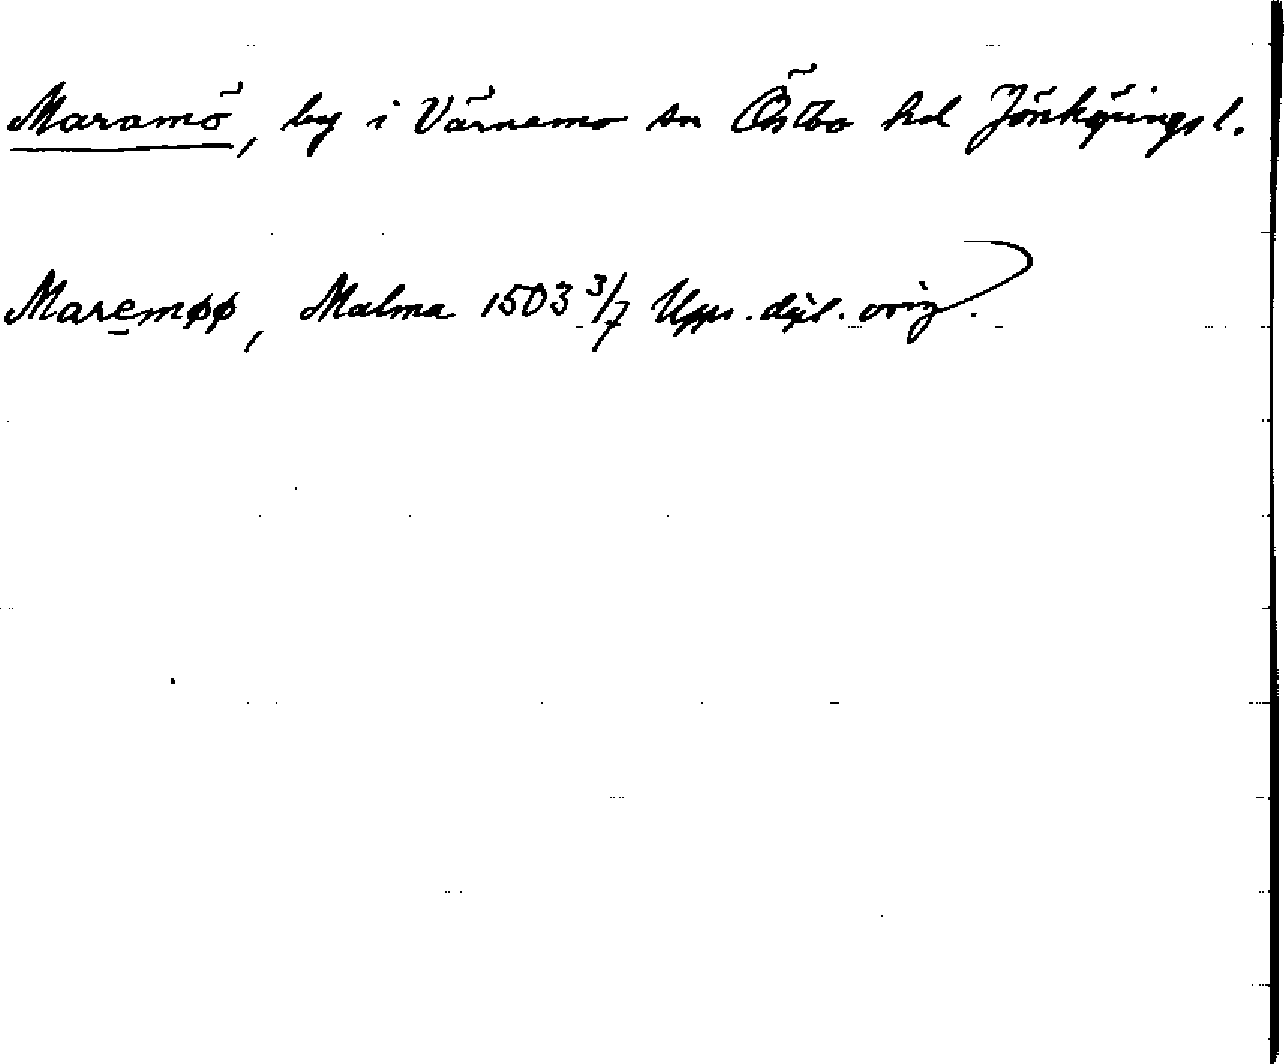 Maramö, by i Värnamo sn Östbo hd Jönköpings l.
Maremøø, Malma 1503 3/7 Upps. dipl. orig.